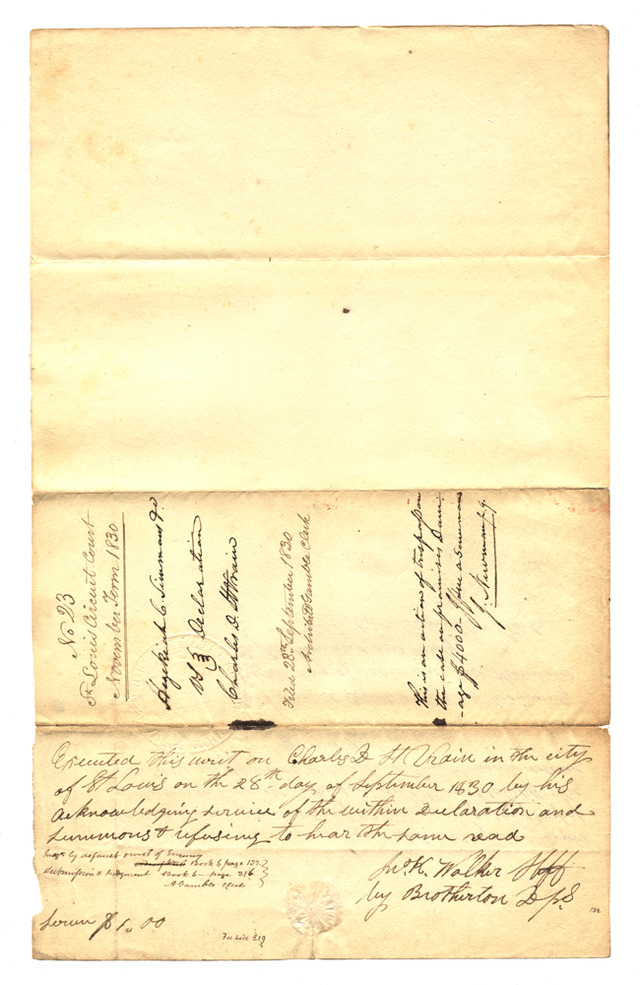 No 23
St Louis Circuit Court
November Term 1830
Hezekiah C. Simmons
vs Declaration
Charles D. St Vrain
Filed 28th September 1830
Archibald Gamble Clerk
This is an action of trespass on
the case on promises Dam-
-age $4000. Issue a summons
J. Newman p. q.
Executed this writ on Charles D St Vrain in the city
of St Louis on the 28th day of September 1830 by his
acknowledging service of the within Declaration and
summons & refusing to hear the same read
Jno. K. Walker Shff
by Brotherton D.S.
Judgt by default & writ of Enquiry
Book 6 page 157
submission & Judgment Book 6 page 316
A Gamble clerk
Serven $1.00
Fee Book 219
132